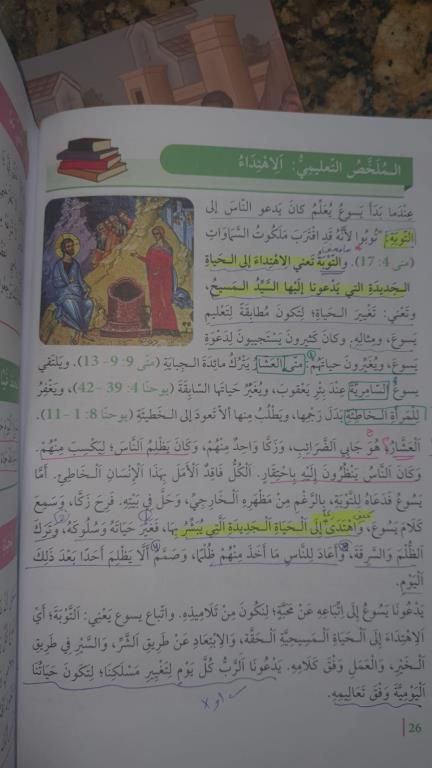 المُلَخَّصُ التَّعليمِيُّ: اَلِاهْتِدَاءُ
عِنْدَما بَدَأَ يَسوعُ يُعَلِّمُ كانَ يَدعو النّاسَ إلى
التَّوبَةِ: "تُوبُوا لأَنَّهُ قَدِ اقْتَرَبَ مَلَكُوتُ السَّمَاوَاتِ"
(متى 4: 17). والتَّوْبَةُ تَعني الاهْتِداءَ إلى الحَياةِ
الجَديدَةِ التي يَدعُونا إلَيْها السَّيِّدُ المَسيحُ،
وتَعْني: تَغْييرَ الحَياةِ؛ لِتكونَ مُطابَقَةً لِتَعليمِ
يَسوعَ، ومِثالِهِ. وكانَ كَثيرونَ يَسْتَجيبونَ لِدَعْوَةِ
يَسوعَ، ويُغَيِّرُونَ حَياتَهُمْ: متى العَشّارُ يَتْرُكُ مائِدَةَ الجِبايَةِ (متّى 9: 9- 13). ويَلتَقي
يسوعُ السّامِرِيَّةَ عِنْدَ بِئْرِ يَعْقوبَ، ويُغَيِّرُ حَياتَها السّابِقَةَ (يوحنّا 4: 39- 42)، ويَغْفِرُ
لِلْمَرأةِ الخاطِئَةِ بَدَلَ رَجْمِها، ويَطْلُبُ مِنها ألاّ تَعودَ إلى الخَطيئَةِ (يوحنّا 8: 1- 11).
اَلْعَشّارُ: هُوَ جَابِي الضَّرائِبِ، وَزَكّا وَاحِدٌ مِنْهُمْ، وَكَانَ يَظْلِمُ النَّاسَ؛ لِيَكْسِبَ مِنْهُمْ.
وَكَانَ النّاسُ يَنْظُرُونَ إِلَيْهِ بِاحْتِقَارٍ. اَلْكُلُّ فَاقِدٌ الْأَمَلَ بِهَذَا الْإِنْسَانِ الْخَاطِئِ. أَمَّا
يَسُوعُ فَدَعَاهُ لِلتَّوْبَةِ، بِالرَّغْمِ مِنْ مَظْهَرِهِ الْخَارِجِيِّ، وَحَلَّ فِي بَيْتِهِ. فَرِحَ زَكَّا، وَسَمِعَ
كَلَامَ يَسُوعَ، وَاهْتَدَى إِلَى الْحَيَاةِ الْجَدِيدَةِ الَّتِي يُبَشِّرُ بِهَا، فَغَيَّرَ حَيَاتَهُ وَسُلُوكَهُ، وَتَرَكَ
الظُّلْمَ وَالسَّرِقَةَ، وَأَعَادَ لِلنَّاسِ مَا أَخَذَ مِنْهُمْ ظُلْمًا، وَصَمَّمَ أَلَّا يَظْلِمَ أَحَدًا بَعْدَ ذَلِكَ
الْيَوْمِ.
يَدْعُونَا يَسُوعُ إِلَى اتِّبَاعِهِ عَنْ مَحَبَّةٍ؛ لِنَكُونَ مِنْ تَلَامِيذِهِ. واتّباعُ يسوع يَعْني: التَّوْبَةَ؛ أَيِ
الاِهْتِدَاءَ إِلَى الْحَيَاةِ الْمَسِيحِيَّةِ الْحَقَّةِ، وَالِابْتِعَادَ عَنْ طَرِيقِ الشَّرِّ، وَالسَّيْرَ فِي طَرِيقِ
الْخَيْرِ، وَالْعَمَلَ وَفْقَ كَلَامِهِ. يَدْعُونَا الرَّبُّ كُلَّ يَوْمٍ لِتَغْيِيرِ مَسْلَكِنَا؛ لِتَكُونَ حَيَاتُنَا
الْيَوْمِيَّةُ وَفْقَ تَعَالِيمِهِ.
26